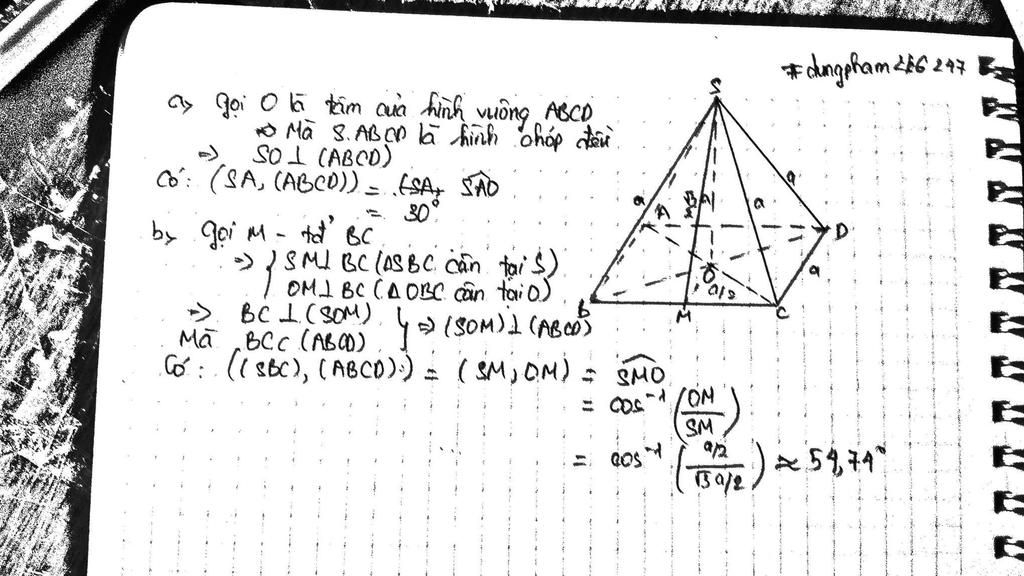 #dungpham226247
a, gọi O là tâm của hình vuông ABCD
=> Mà S.ABCD là hình chóp đều
=> SO ⊥ (ABCD)
Có: (SA, (ABCD)) = SAO
= 30°
b, gọi M - tđ BC
=> { SM ⊥ BC (ΔSBC cân tại S)
OM ⊥ BC (ΔOBC cân tại O)
=> BC ⊥ (SOM) } => (SOM) ⊥ (ABCD)
Mà BC ⊂ (ABCD)
Có: ((SBC), (ABCD)) = (SM, OM) = SMO
= cos⁻¹ (OM/SM)
= cos⁻¹ ((a/2)/(√3a/2)) ≈ 54,74°
S
a
a
A
a
D
O
a
a/2
B
M
C